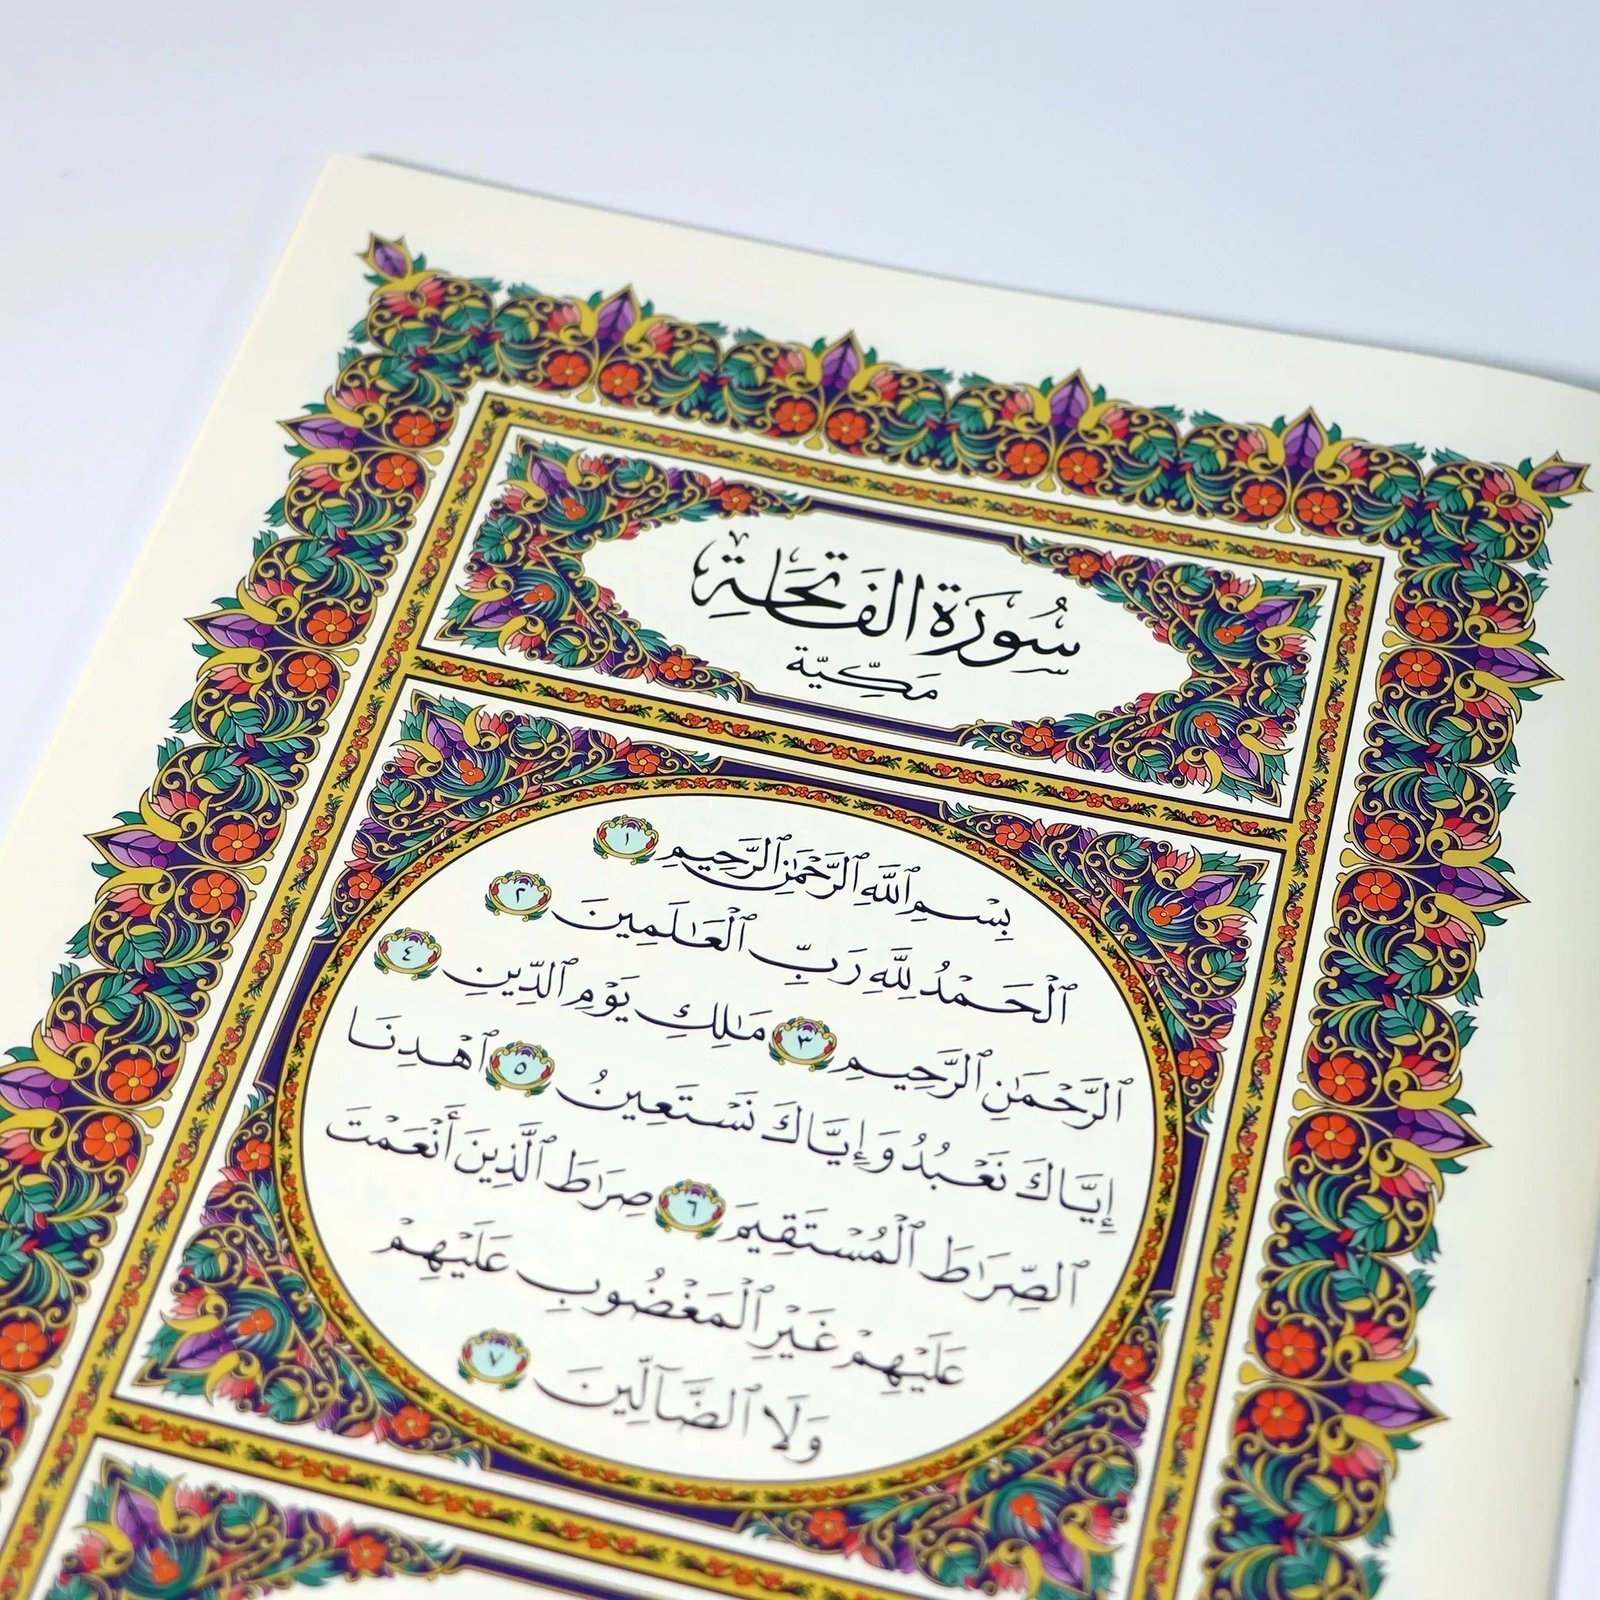 سُورَةُ الفَاتِحَةِ
مَكِّيَّة
بِسْمِ ٱللَّهِ ٱلرَّحْمَٰنِ ٱلرَّحِيمِ ١
ٱلْحَمْدُ لِلَّهِ رَبِّ ٱلْعَٰلَمِينَ ٢
ٱلرَّحْمَٰنِ ٱلرَّحِيمِ ٣ مَٰلِكِ يَوْمِ ٱلدِّينِ ٤
إِيَّاكَ نَعْبُدُ وَإِيَّاكَ نَسْتَعِينُ ٥ ٱهْدِنَا
ٱلصِّرَٰطَ ٱلْمُسْتَقِيمَ ٦ صِرَٰطَ ٱلَّذِينَ أَنْعَمْتَ
عَلَيْهِمْ غَيْرِ ٱلْمَغْضُوبِ عَلَيْهِمْ
وَلَا ٱلضَّآلِّينَ ٧